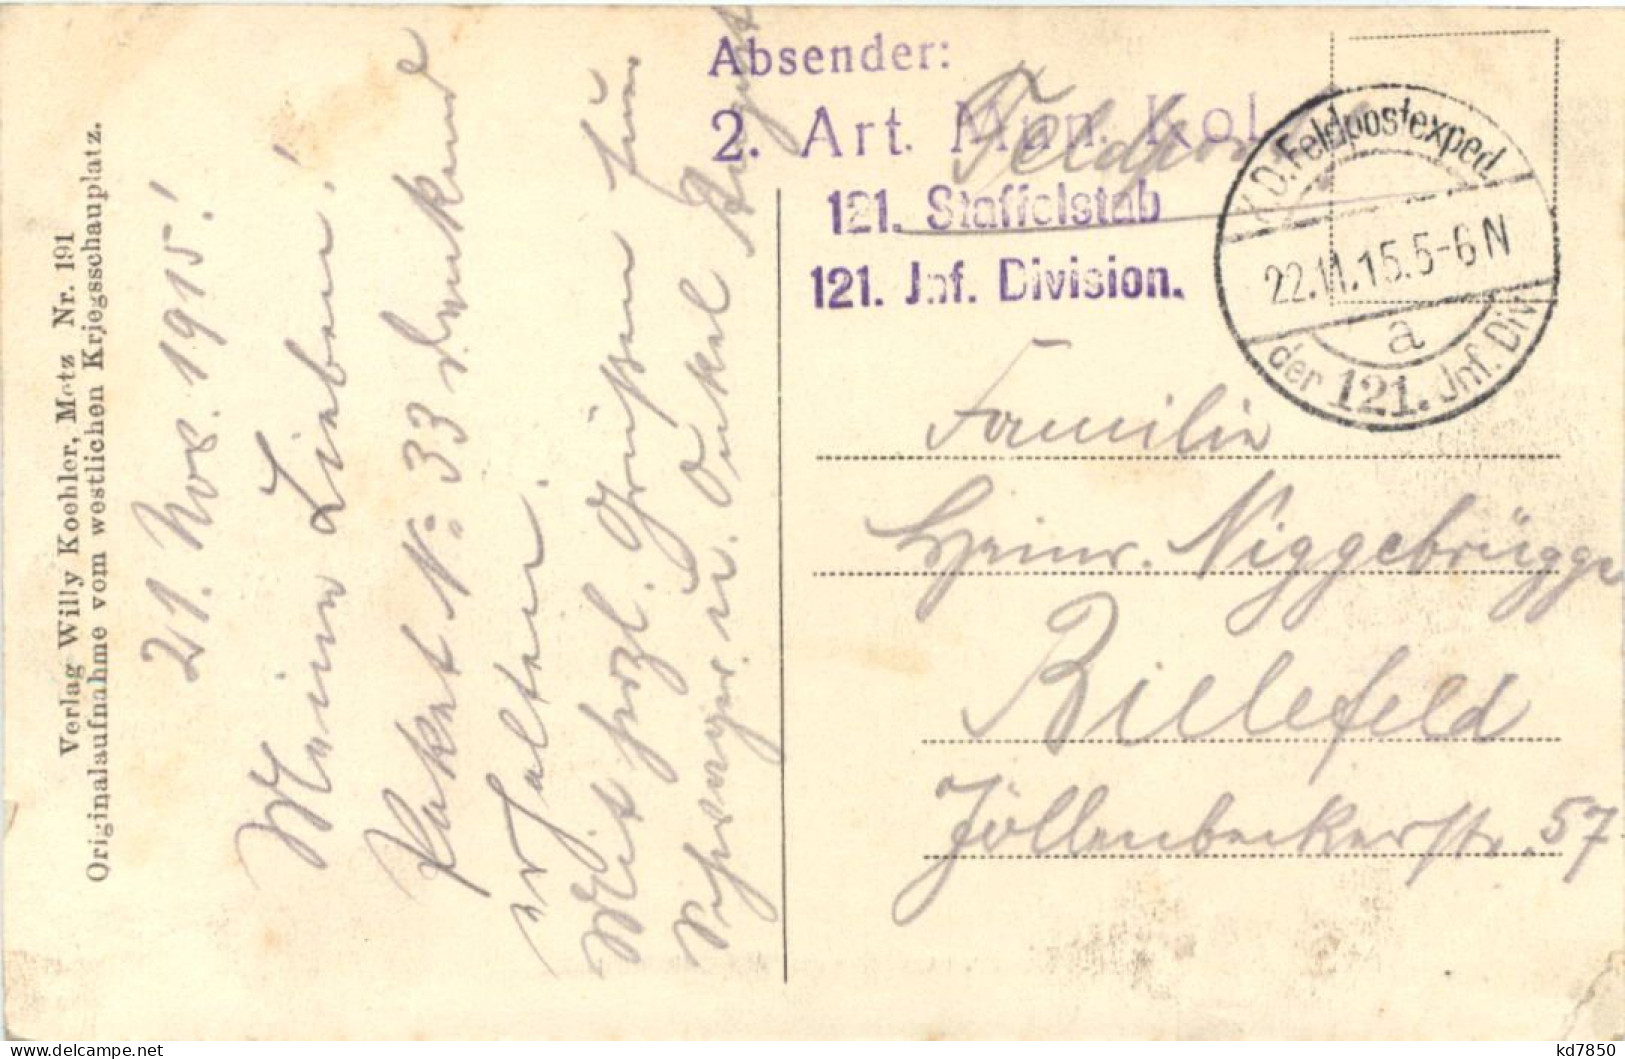 Verlag Willy Koehler, Metz Nr. 191
Originalaufnahme vom westlichen Kriegsschauplatz.
21. Nov. 1915!
Meine Lieben!
Paket N: 33 dankend
erhalten.
Mit herzl. Grüßen Euer
Schwager u. Onkel August
Absender:
2. Art. Mun. Kol.
Feldpost
121. Staffelstab
121. Inf. Division.
K.D. Feldpostexped.
22.11.15.5-6N
a
der 121. Inf. Div.
Familie
Heinr. Niggebrügge
Bielefeld
Jöllenbeckerstr. 57
kd7850